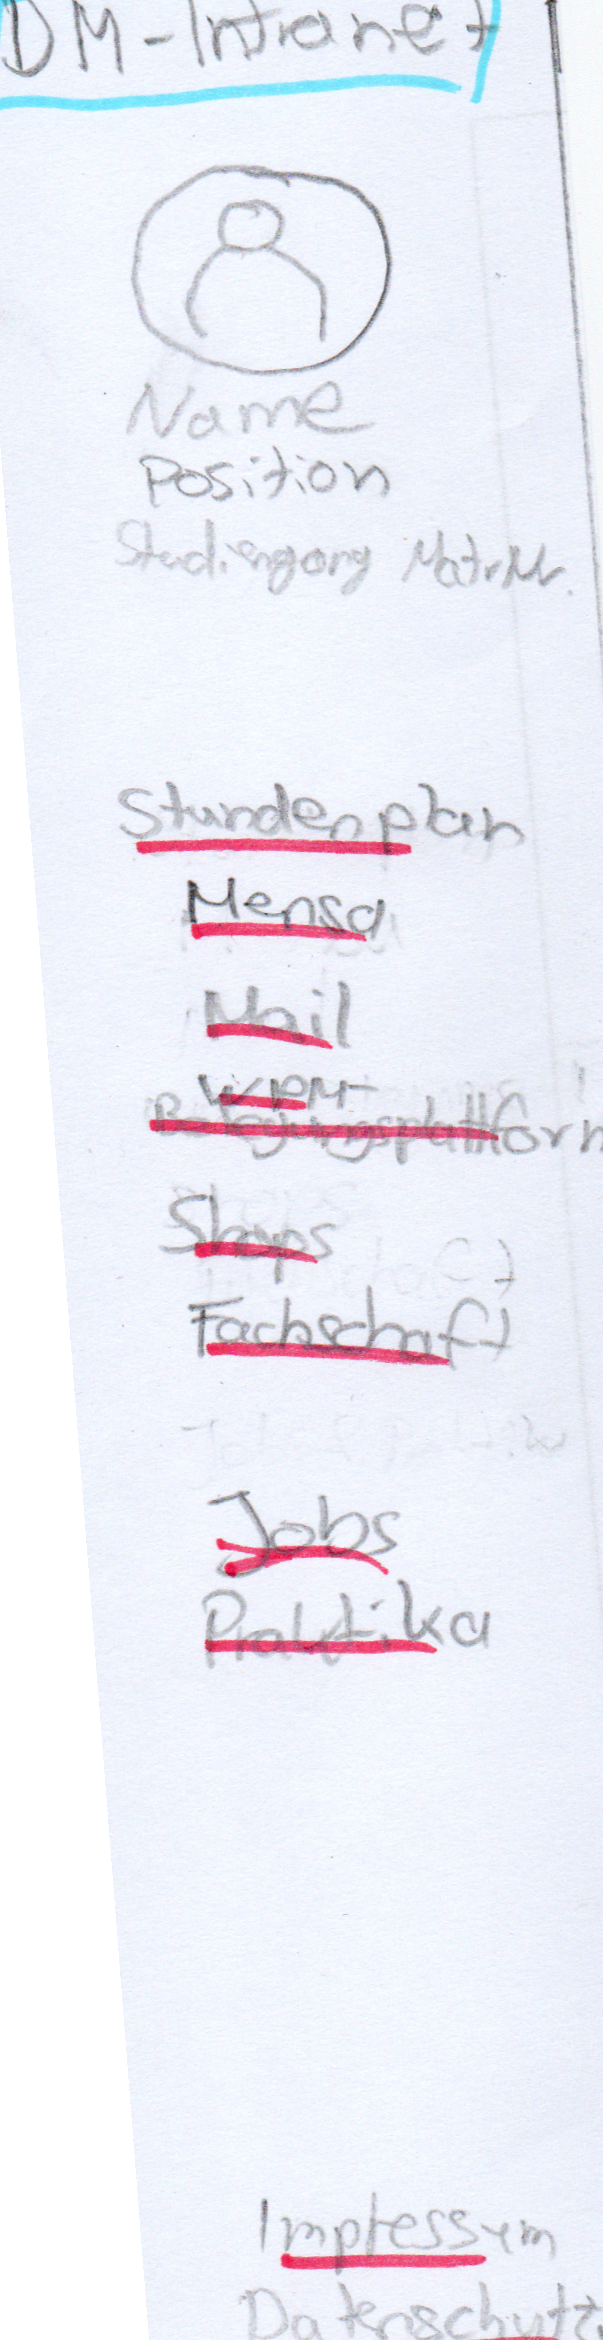 DM-Intranet
Name
Position
Studiengang Matr Nr.
Stundenplan
Mensa
Mail
WPM-
Belegungsplattform
Shops
Fachschaft
Jobs
Praktika
Impressum
Datenschutz